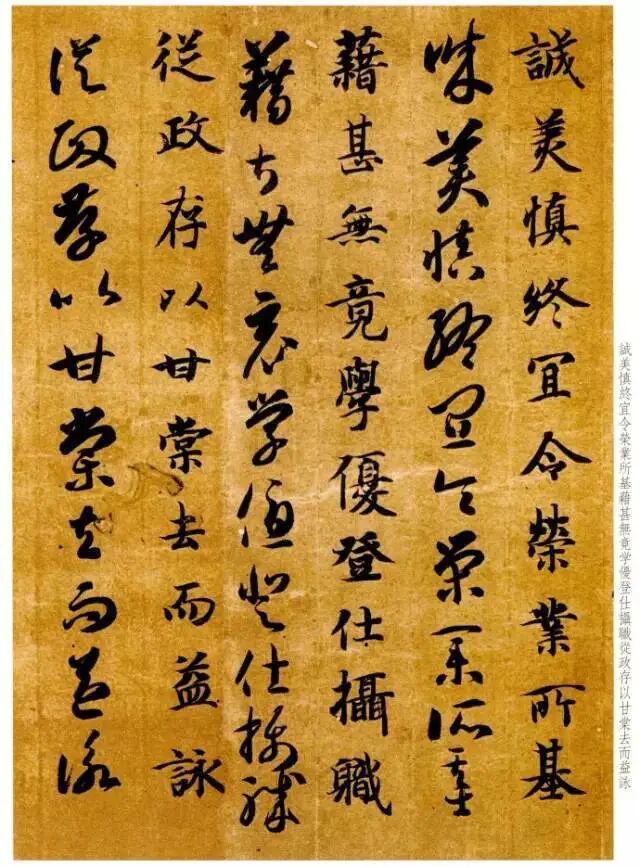 誠美慎終宜令榮業所基
誠美慎終宜令榮業所基
藉甚無竟學優登仕攝職
藉甚無竟學優登仕攝職
從政存以甘棠去而益詠
從政存以甘棠去而益詠
誠美慎終宜令榮業所基藉甚無竟学優登仕攝職從政存以甘棠去而益詠